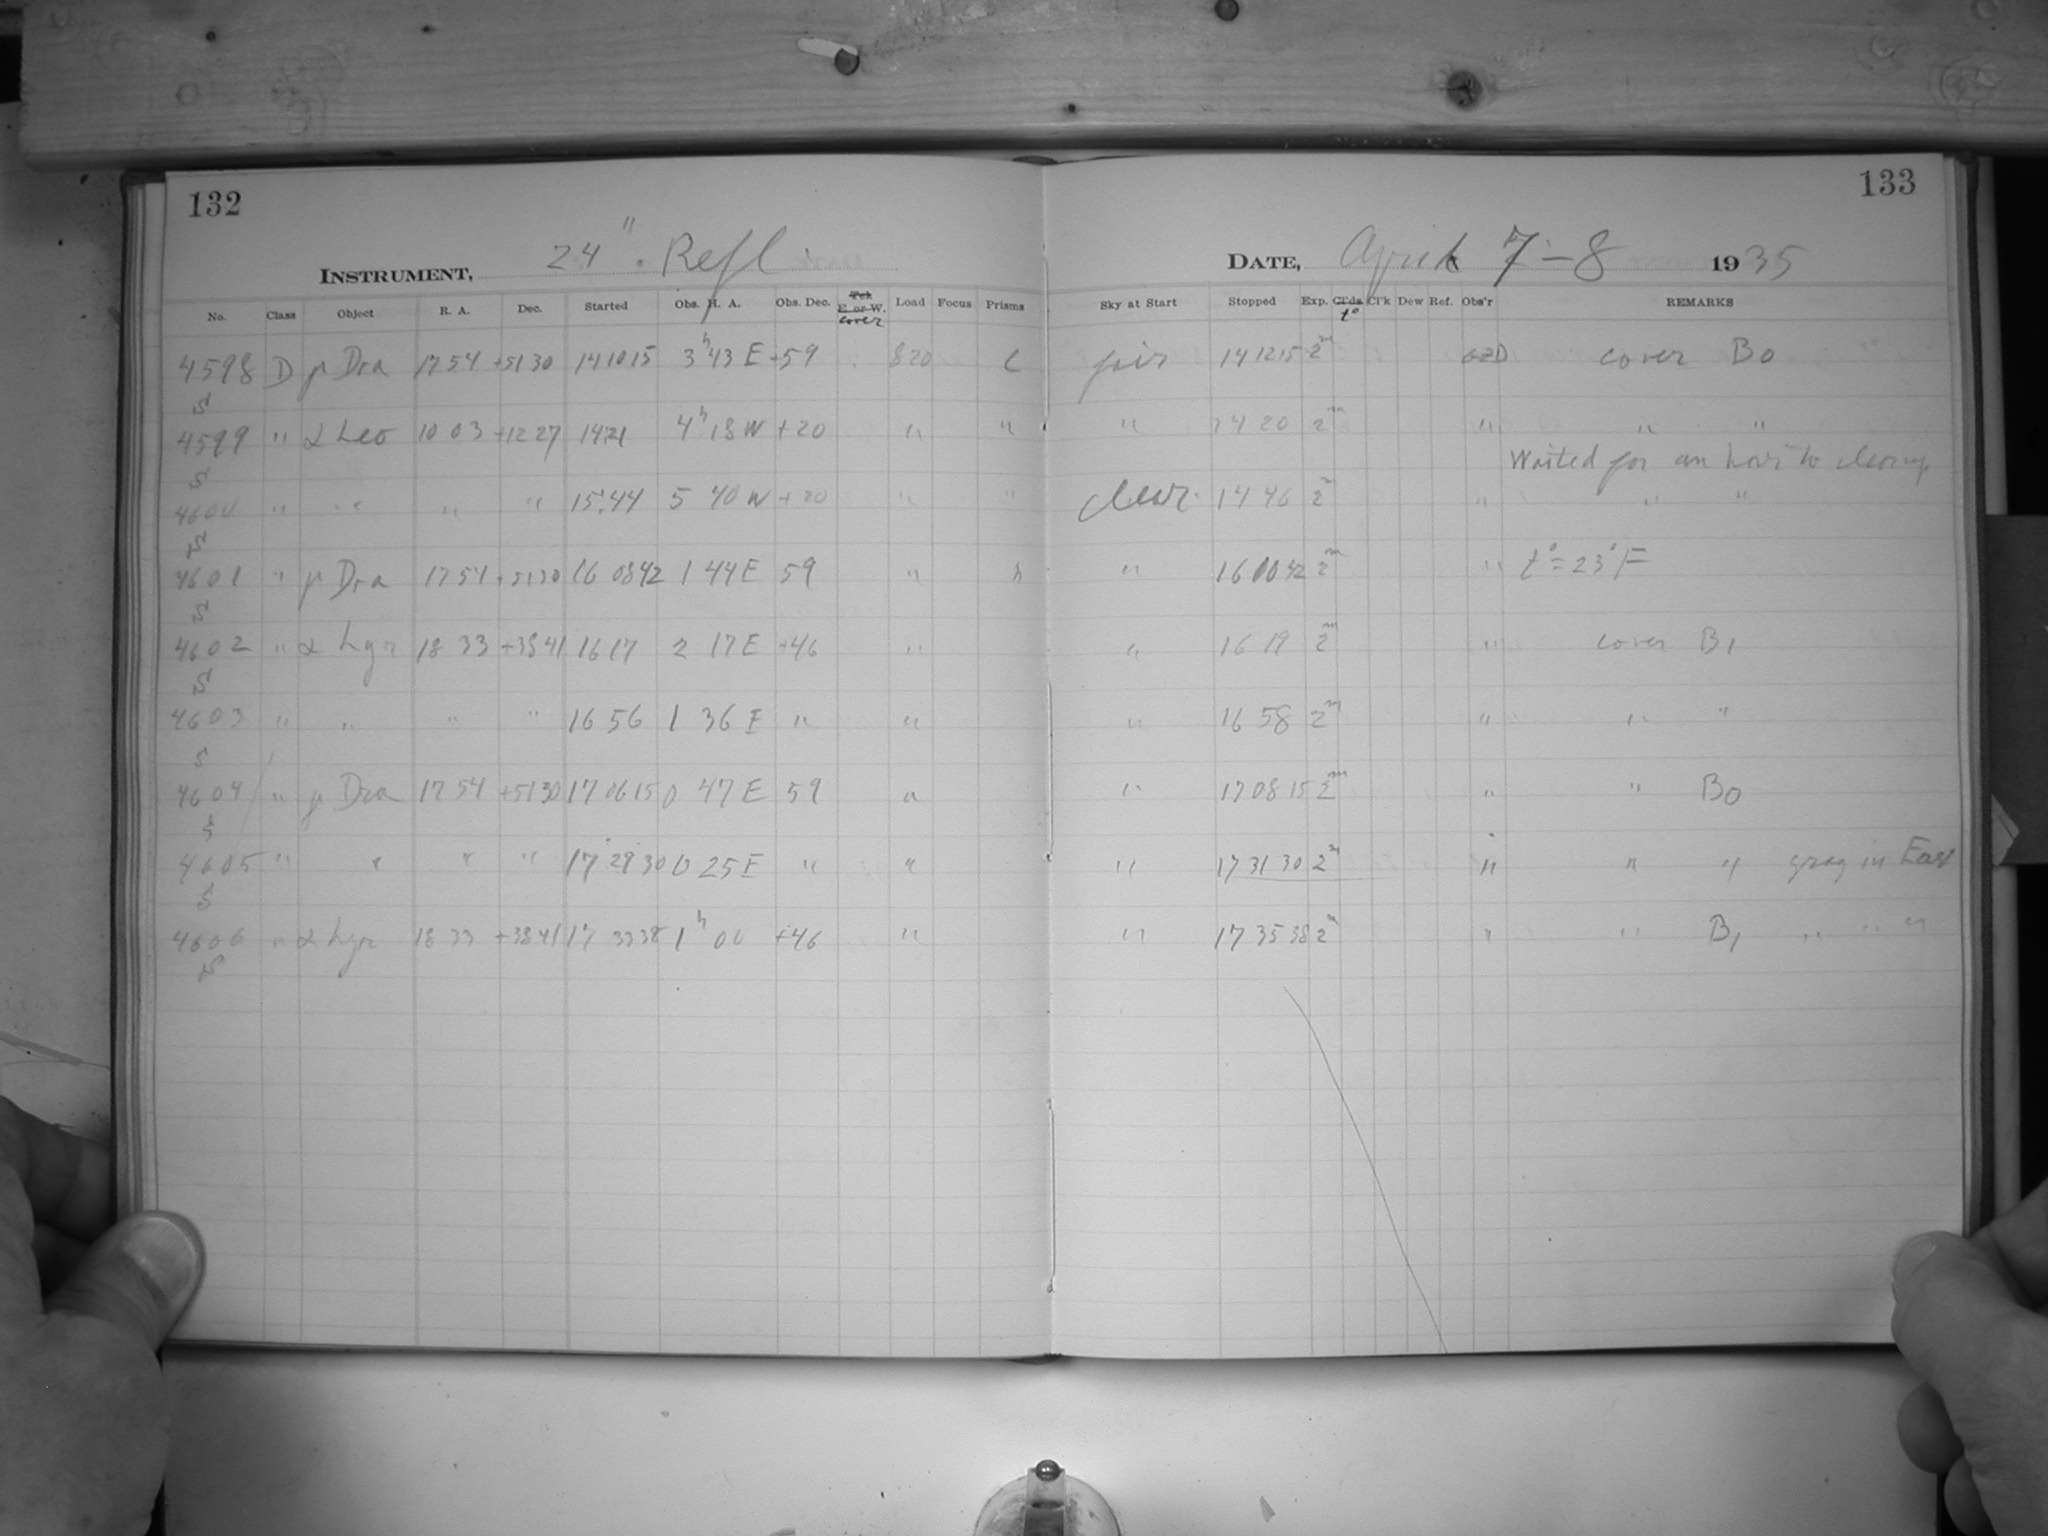 132
INSTRUMENT, 24" Refl.
No. Class Object R. A. Dec. Started Obs. H. A. Obs. Dec. Tek E. or W. cover Load Focus Prisms
4598 D γ Dra 17 54 +51 30 14 10 15 3ʰ 43 E +59 820 C
S
4599 " α Leo 10 03 +12 27 14 21 4ʰ 18 W +20 " "
S
4600 " " " " 15 44 5 40 W +20 " "
S
4601 " γ Dra 17 54 +51 30 16 08 42 1 44 E 59 "
S
4602 " α Lyr 18 33 +38 41 16 17 2 17 E +46 "
S
4603 " " " " 16 56 1 36 E " "
S
4604 " γ Dra 17 54 +51 30 17 06 15 0 47 E 59 "
S
4605 " " " " 17 29 30 0 25 E " "
S
4606 " α Lyr 18 33 +38 41 17 33 38 1ʰ 00 +46 "
S
133
DATE, April 7-8 1935
Sky at Start Stopped Exp. Cl'ds t° Cl'k Dew Ref. Obs'r REMARKS
fair 14 12 15 2ᵐ cover B0
" 14 20 2ᵐ " " "
Waited for an hour to clear up
clear 14 46 2ᵐ " " "
" 16 10 42 2ᵐ " t° = 23° F
" 16 19 2ᵐ " cover B1
" 16 58 2ᵐ " " "
" 17 08 15 2ᵐ " " B0
" 17 31 30 2ᵐ " " " gray in East
" 17 35 38 2ᵐ " " B1 " " "